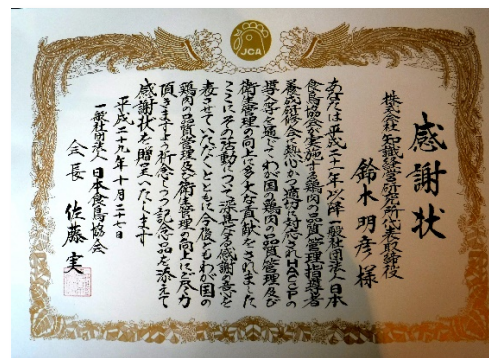 JCA
感謝状
株式会社 知識経営研究所代表取締役
鈴木明彦様
あなたは平成二十一年以降一般社団法人日本
食鳥協会が実施する鶏肉の品質管理指導者
養成研修会で熱心かつ適切に対応されHACCPの
導入等を通じてわが国の鶏肉の品質管理及び
衛生管理の向上に多大な貢献をされました
ここにその活動について深甚なる感謝の意を
表させていただくとともに今後ともわが国の
鶏肉の品質管理及び衛生管理の向上にご尽力
頂きますよう祈念しつつ記念品を添えて
感謝状を贈呈いたします
平成二十九年十月二十七日
一般社団法人 日本食鳥協会
会長 佐藤 実